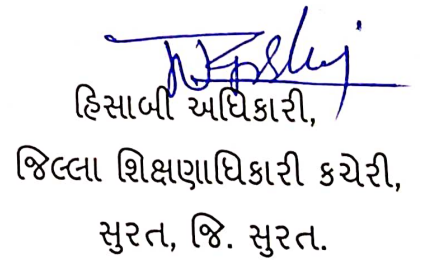 હિસાબી અધિકારી,
જિલ્લા શિક્ષણાધિકારી કચેરી,
સુરત, જિ. સુરત.